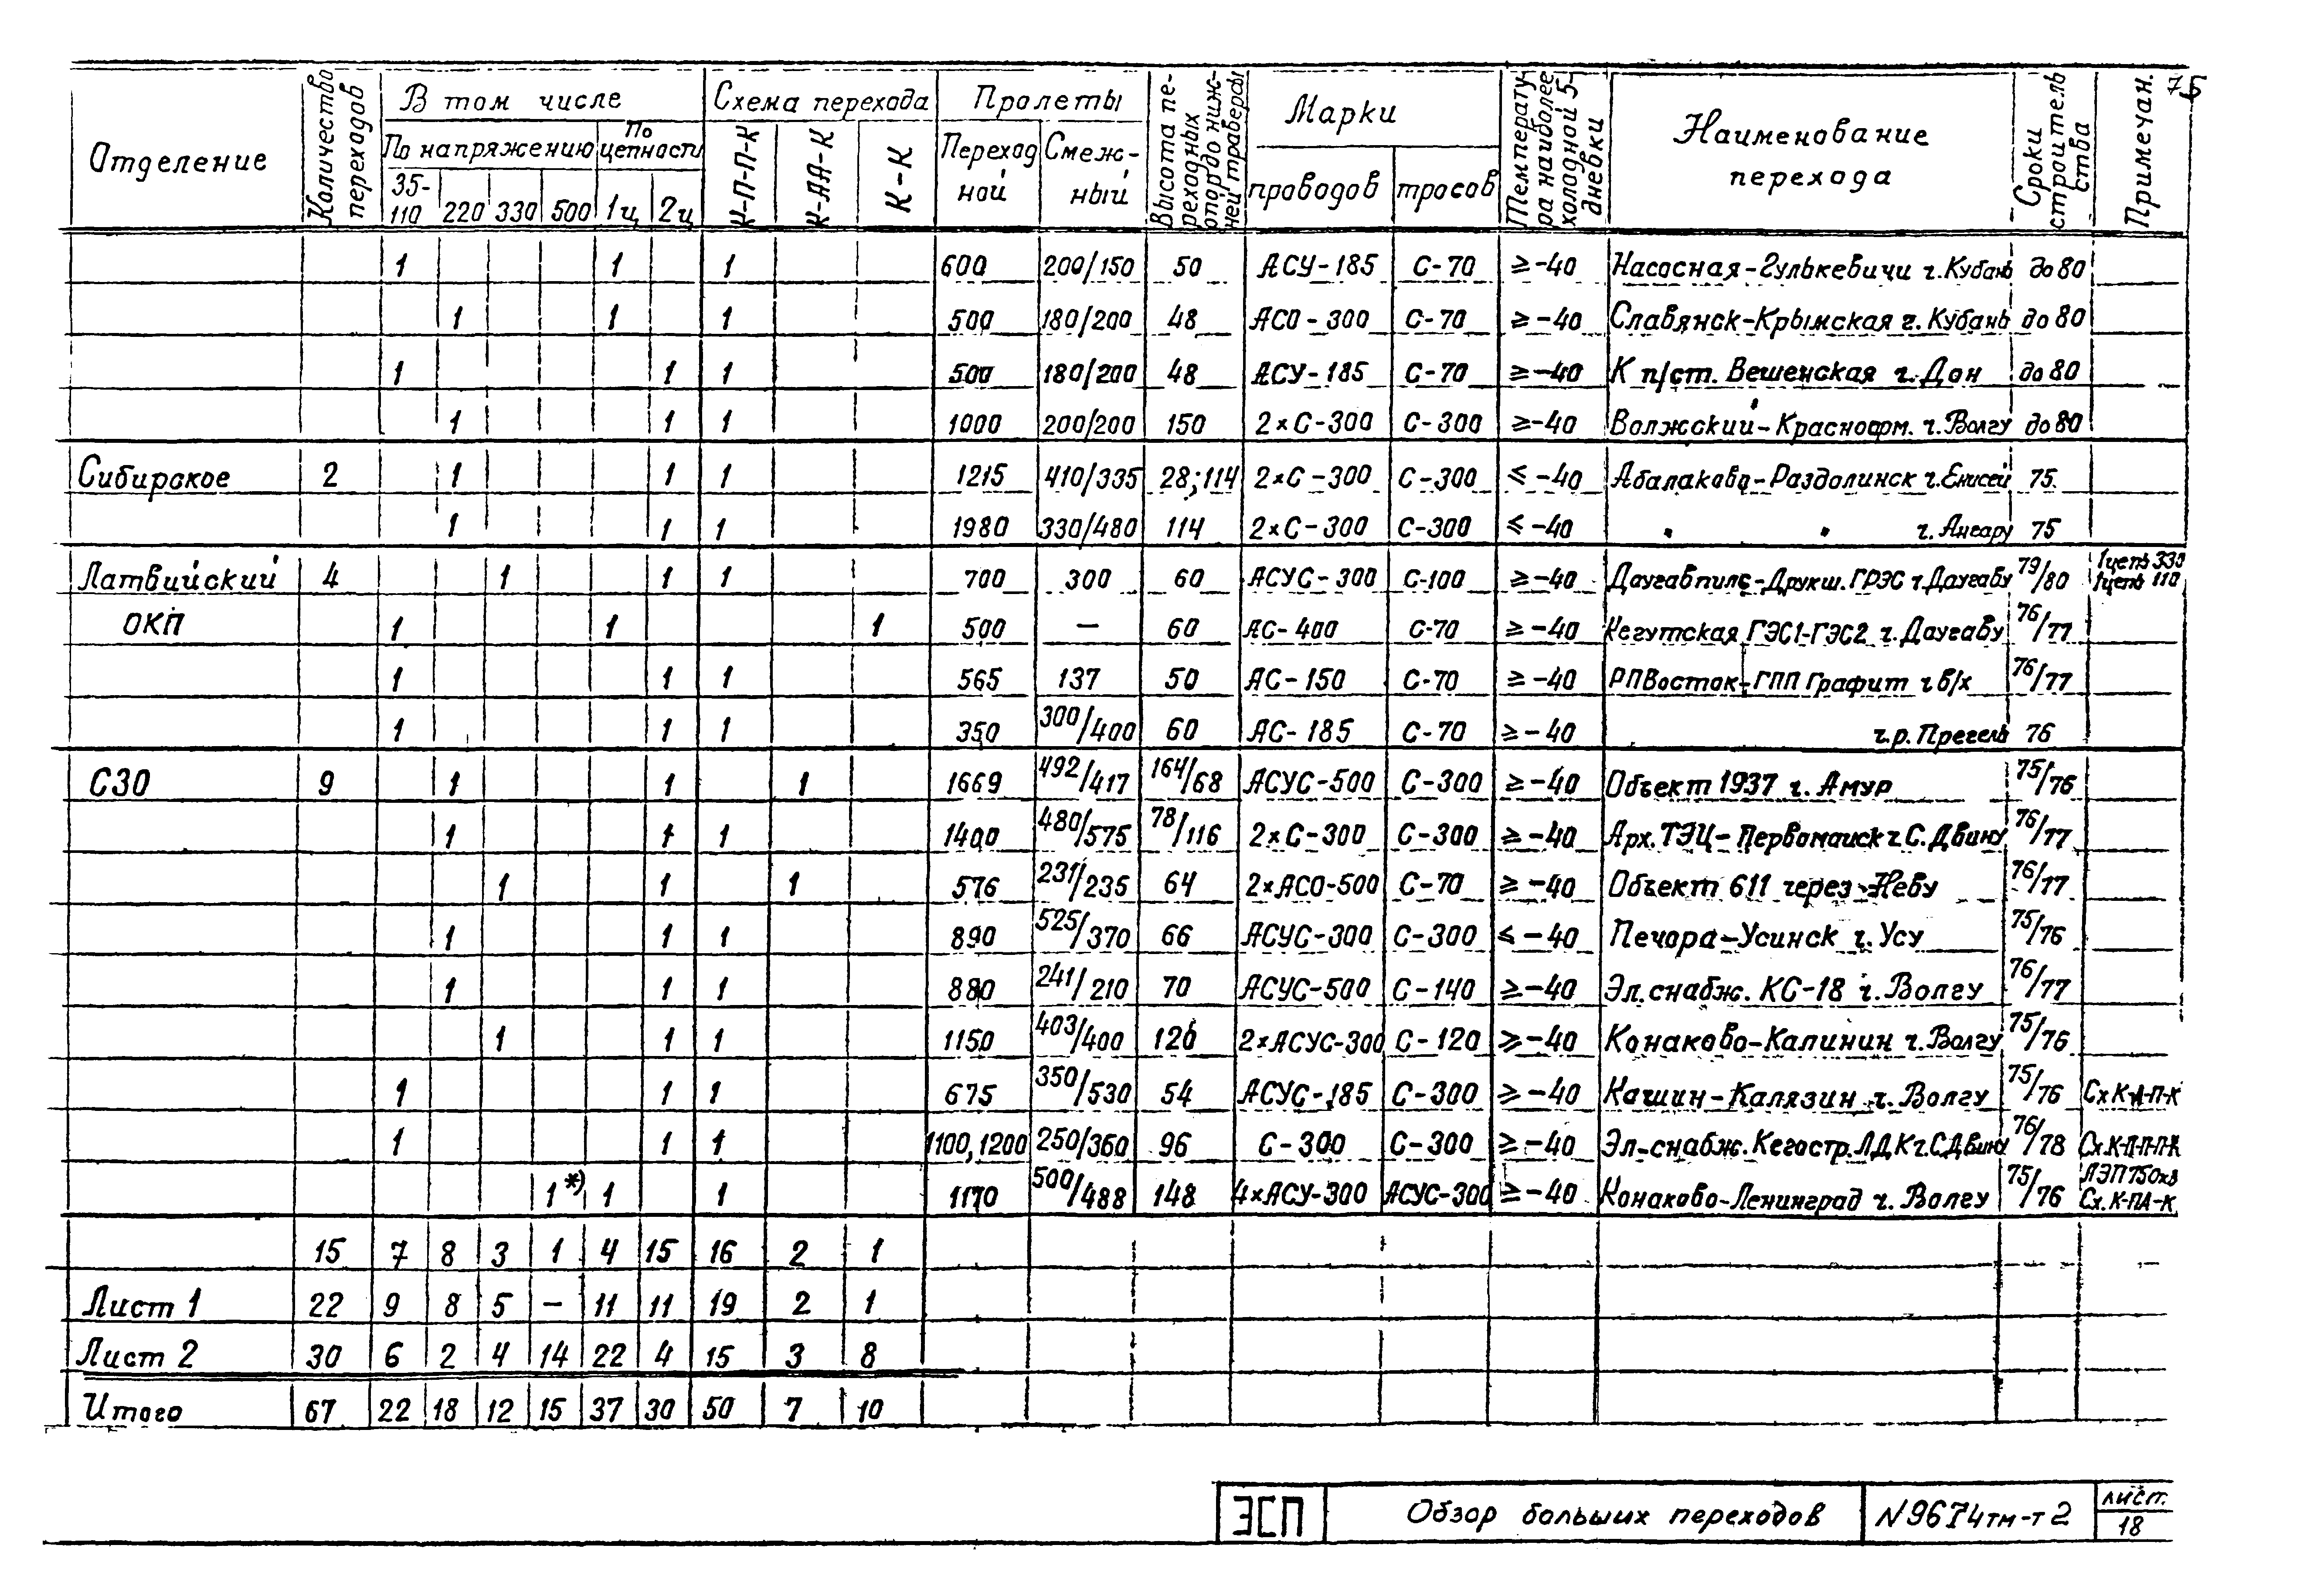 75
Отделение | Количество переходов | В том числе | Схема перехода | Пролеты | Высота переходных опор до нижней траверсы | Марки | Температура наиболее холодной 5-дневки | Наименование перехода | Сроки строительства | Примечан.
По напряжению | По цепности | К-П-П-К | К-АА-К | К-К | Переходной | Смежный | проводов | тросов
35-110 | 220 | 330 | 500 | 1ц | 2ц
1 | 1 | 1 | 600 | 200/150 | 50 | АСУ-185 | С-70 | ≥-40 | Насосная-Гулькевичи ч. Кубань | до 80
1 | 1 | 1 | 500 | 180/200 | 48 | АСО-300 | С-70 | ≥-40 | Славянск-Крымская ч. Кубань | до 80
1 | 1 | 1 | 500 | 180/200 | 48 | АСУ-185 | С-70 | ≥-40 | К п/ст. Вешенская ч. Дон | до 80
1 | 1 | 1 | 1000 | 200/200 | 150 | 2×С-300 | С-300 | ≥-40 | Волжский-Красноарм. ч. Волгу | до 80
Сибирское | 2 | 1 | 1 | 1 | 1215 | 410/335 | 28;114 | 2×С-300 | С-300 | ≤-40 | Абалаково-Раздолинск ч. Енисей | 75
1 | 1 | 1 | 1980 | 330/480 | 114 | 2×С-300 | С-300 | ≤-40 | " " ч. Ангару | 75
Латвийский | 4 | 1 | 1 | 1 | 700 | 300 | 60 | АСУС-300 | С-100 | ≥-40 | Даугавпилс-Друкш. ГРЭС ч. Даугаву | 79/80 | 1цепь 330 1цепь 110
ОКП | 1 | 1 | 1 | 500 | — | 60 | АС-400 | С-70 | ≥-40 | Кегутская ГЭС1-ГЭС2 ч. Даугаву | 76/77
1 | 1 | 1 | 565 | 137 | 50 | АС-150 | С-70 | ≥-40 | РПВосток-ГПП Графит ч в/х | 76/77
1 | 1 | 1 | 350 | 300/400 | 60 | АС-185 | С-70 | ≥-40 | ч.р. Прегель | 76
СЗО | 9 | 1 | 1 | 1 | 1669 | 492/417 | 164/68 | АСУС-500 | С-300 | ≥-40 | Объект 1937 ч. Амур | 75/76
1 | 1 | 1 | 1400 | 480/575 | 78/116 | 2×С-300 | С-300 | ≥-40 | Арх. ТЭЦ-Первомайск ч. С. Двину | 76/77
1 | 1 | 1 | 576 | 231/235 | 64 | 2×АСО-500 | С-70 | ≥-40 | Объект 611 через Неву | 76/77
1 | 1 | 1 | 890 | 525/370 | 66 | АСУС-300 | С-300 | ≤-40 | Печора-Усинск ч. Усу | 75/76
1 | 1 | 1 | 880 | 241/210 | 70 | АСУС-500 | С-140 | ≥-40 | Эл. снабж. КС-18 ч. Волгу | 76/77
1 | 1 | 1 | 1150 | 403/400 | 120 | 2×АСУС-300 | С-120 | ≥-40 | Конаково-Калинин ч. Волгу | 75/76
1 | 1 | 1 | 675 | 350/530 | 54 | АСУС-185 | С-300 | ≥-40 | Кашин-Калязин ч. Волгу | 75/76 | Сх К-А-П-К
1 | 1 | 1 | 1100,1200 | 250/360 | 96 | С-300 | С-300 | ≥-40 | Эл-снабж. Кегостр. ЛДК ч. С Двину | 76/78 | Сх. К-П-П-П-К
1*) | 1 | 1 | 1170 | 500/488 | 148 | 4×АСУ-300 | АСУС-300 | ≥-40 | Конаково-Ленинград ч. Волгу | 75/76 | ЛЭП 750кв Сх. К-ПА-К
15 | 7 | 8 | 3 | 1 | 4 | 15 | 16 | 2 | 1
Лист 1 | 22 | 9 | 8 | 5 | – | 11 | 11 | 19 | 2 | 1
Лист 2 | 30 | 6 | 2 | 4 | 14 | 22 | 4 | 15 | 3 | 8
Итого | 67 | 22 | 18 | 12 | 15 | 37 | 30 | 50 | 7 | 10
ЭСП | Обзор больших переходов | N 9674тм-т2 | лист. 18